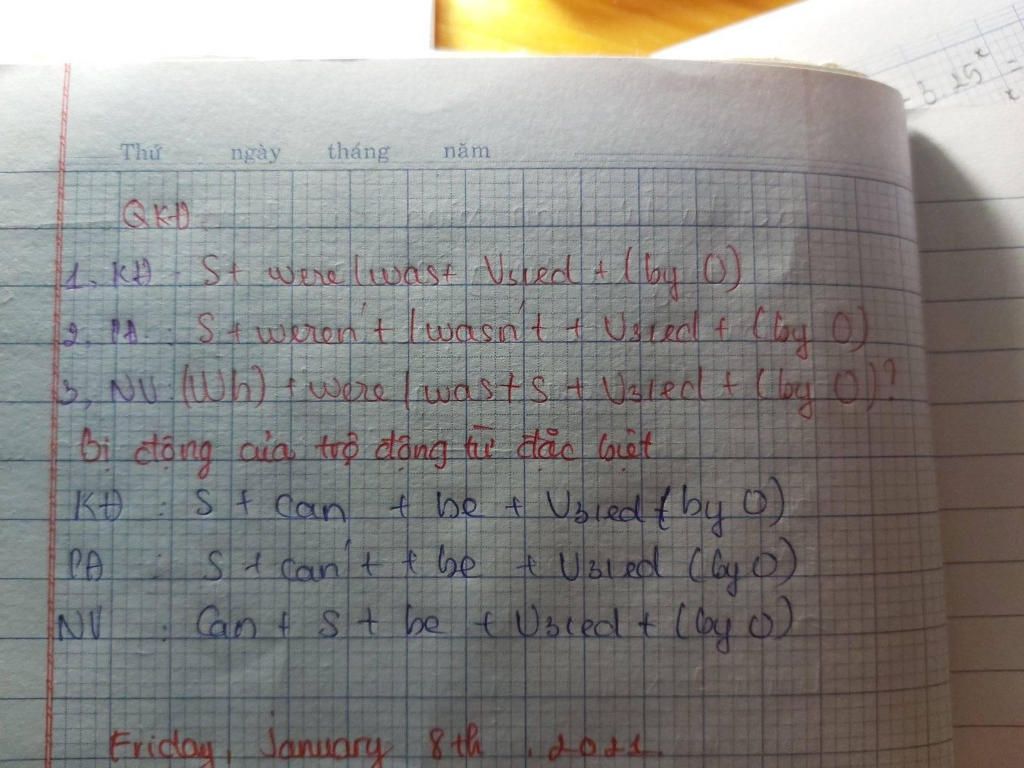 - 3.25ˣ
Thứ ngày tháng năm
QKĐ
1, KĐ : S + were / was + V3/ed + (by O)
2, PĐ : S + weren't / wasn't + V3/ed + (by O)
3, NV : (Wh) + were / was + S + V3/ed + (by O) ?
Bị động của trợ động từ đặc biệt
KĐ : S + can + be + V3/ed (by O)
PĐ : S + can't + be + V3/ed (by O)
NV : Can + S + be + V3/ed + (by O)
Friday, January 8th , 2021.